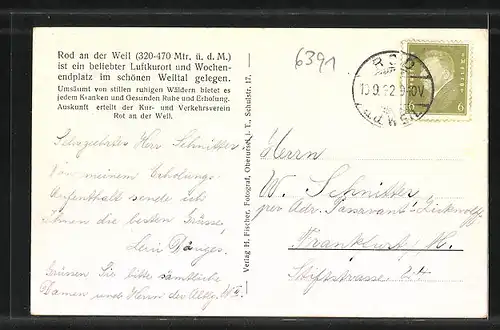 Rod an der Weil (320-470 Mtr. ü. d. M.)
ist ein beliebter Luftkurort und Wochen-
endplatz im schönen Weiltal gelegen.
Umsäumt von stillen ruhigen Wäldern bietet es
jedem Kranken und Gesunden Ruhe und Erholung.
Auskunft erteilt der Kur- und Verkehrsverein
Rot an der Weil.
Sehrgeehrter Herr Schnitter
Von meinem Erholungs-
aufenthalt sende ich
Ihnen die besten Grüsse,
Grüssen Sie bitte sämtliche
Damen und Herrn der Abtlg.
Verlag H. Fischer, Fotograf, Oberursel i. T., Schulstr. 17.
6391
ROD
6 6
Herrn
W. Schnitter
per Adr.
Frankfurt/M.
Stiftstrasse